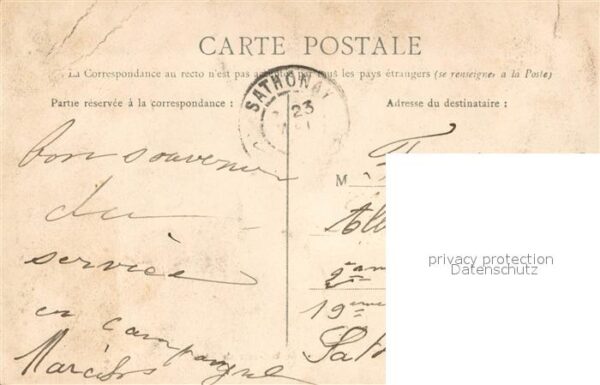 CARTE POSTALE
La Correspondance au recto n'est pas acceptée par tous les pays étrangers (se renseigner à la Poste)
Partie réservée à la correspondance :
Adresse du destinataire :
SATHONAY
23
bon souvenir
du
service
en campagne
M
2ème
19ème
Sath
privacy protection
Datenschutz